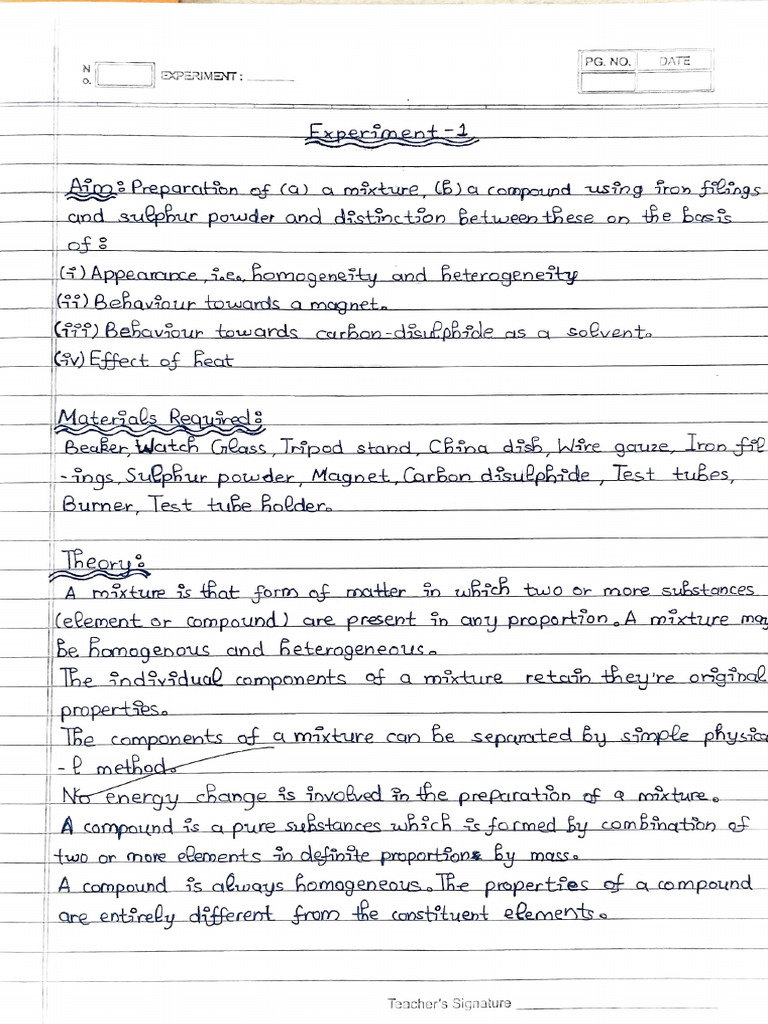 N
o.
EXPERIMENT :
PG. NO. DATE
Experiment-1
Aim: Preparation of (a) a mixture, (b) a compound using iron filings
and sulphur powder and distinction between these on the basis
of:
(i) Appearance, i.e., homogeneity and heterogeneity
(ii) Behaviour towards a magnet.
(iii) Behaviour towards carbon-disulphide as a solvent.
(iv) Effect of heat
Materials Required:
Beaker, Watch Glass, Tripod stand, China dish, Wire gauze, Iron fil
-ings, Sulphur powder, Magnet, Carbon disulphide, Test tubes,
Burner, Test tube holder.
Theory:
A mixture is that form of matter in which two or more substances
(element or compound) are present in any proportion. A mixture may
be homogenous and heterogeneous.
The individual components of a mixture retain they're original
properties.
The components of a mixture can be separated by simple physica
-l method.
No energy change is involved in the preparation of a mixture.
A compound is a pure substances which is formed by combination of
two or more elements in definite proportions by mass.
A compound is always homogeneous. The properties of a compound
are entirely different from the constituent elements.
Teacher's Signature